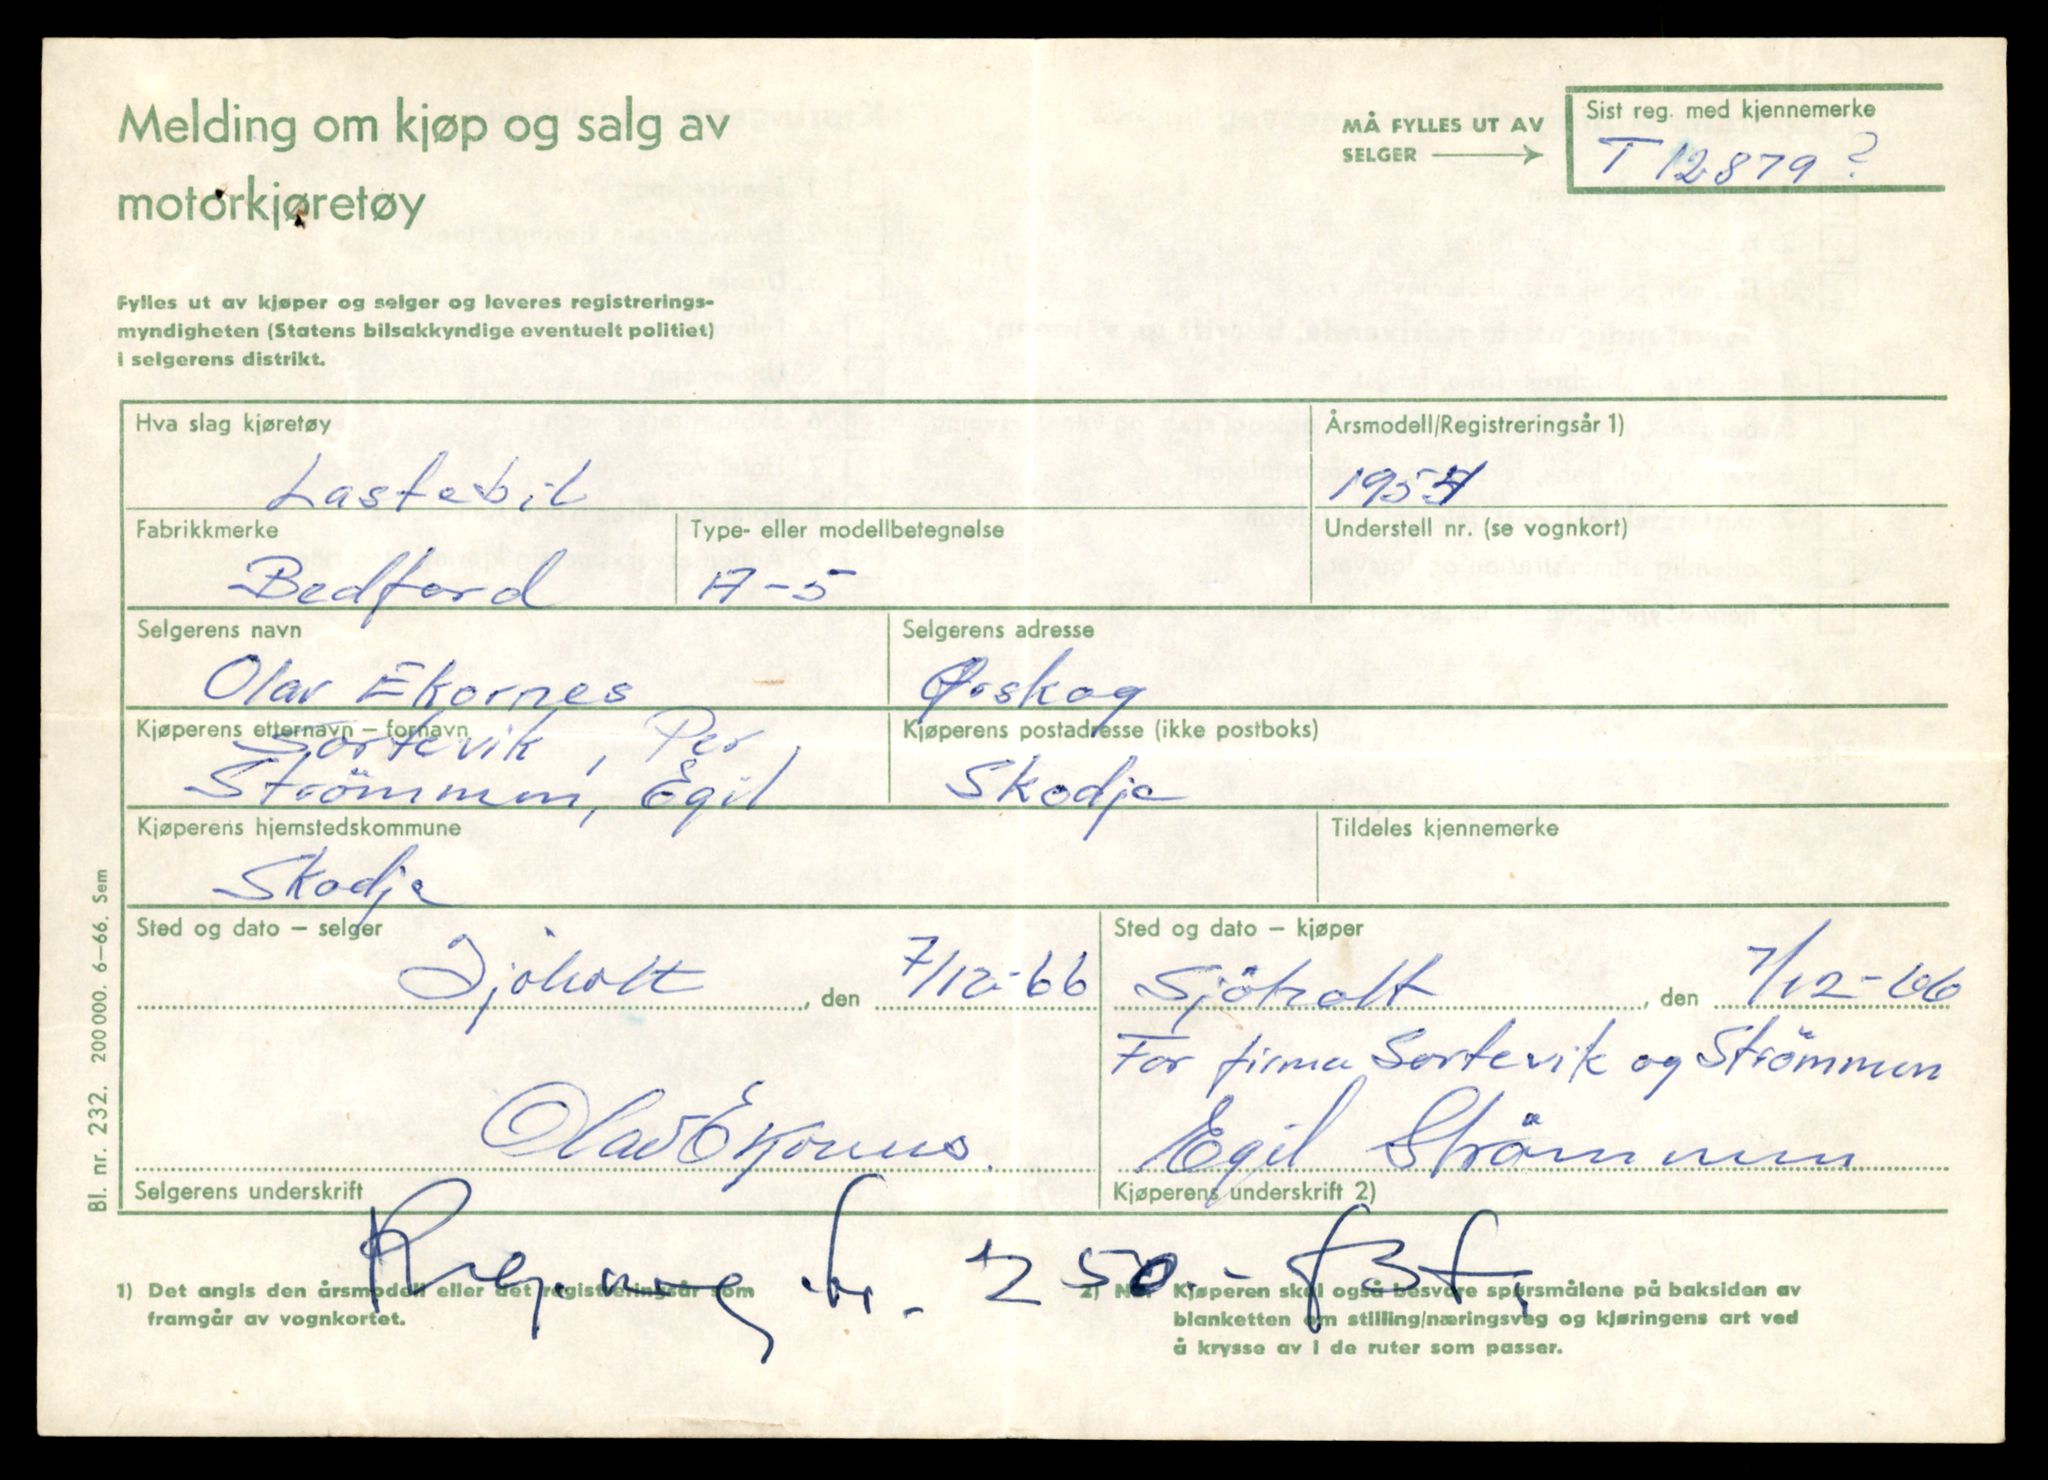 Melding om kjøp og salg av
motorkjøretøy
MÅ FYLLES UT AV
SELGER
Sist reg. med kjennemerke
T 12879 ?
Fylles ut av kjøper og selger og leveres registrerings-
myndigheten (Statens bilsakkyndige eventuelt politiet)
i selgerens distrikt.
Hva slag kjøretøy
Lastebil
Årsmodell/Registreringsår 1)
Fabrikkmerke
Bedford
Type- eller modellbetegnelse
A-5
Understell nr. (se vognkort)
Selgerens navn
Olav Ekornes
Selgerens adresse
Ørskog
Kjøperens etternavn – fornavn
Sortevik, Per
Strömmen, Egil
Kjøperens postadresse (ikke postboks)
Skodje
Kjøperens hjemstedskommune
Skodje
Tildeles kjennemerke
Sted og dato – selger
Sjöholt, den 7/12-66
Olav Ekornes.
Selgerens underskrift
Sted og dato – kjøper
Sjöholt, den 7/12-66
For firma Sortevik og Strömmen
Egil Strömmen
Kjøperens underskrift 2)
kr. 250.-
1) Det angis den årsmodell eller det registreringsår som
framgår av vognkortet.
2) NB! Kjøperen skal også besvare spørsmålene på baksiden av
blanketten om stilling/næringsveg og kjøringens art ved
å krysse av i de ruter som passer.
Bl. nr. 232. 200 000. 6–66. Sem